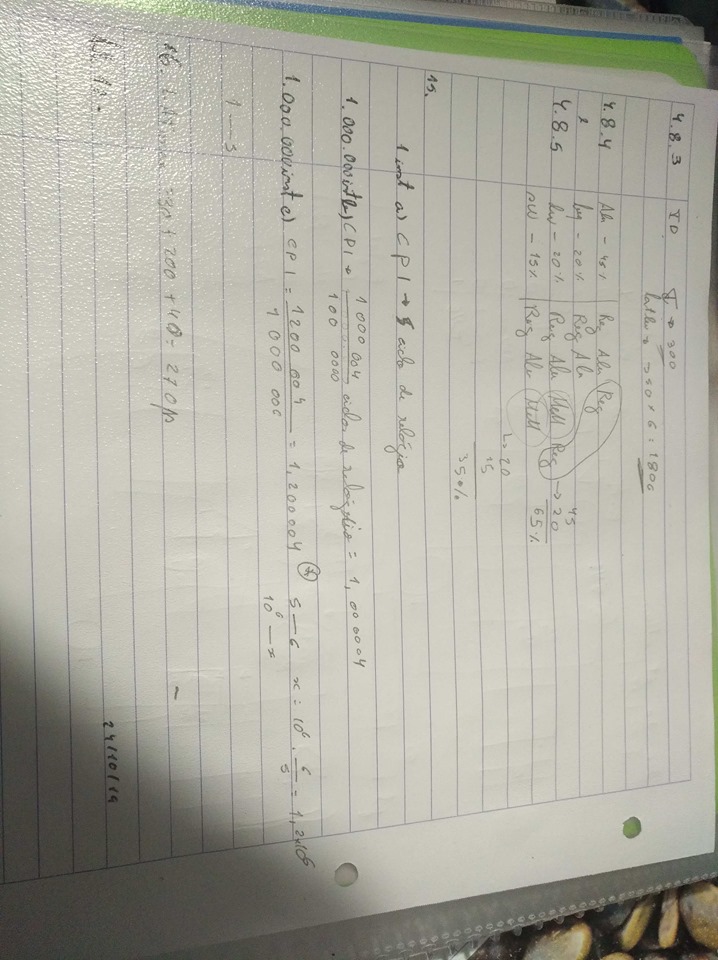 4.8.3 ID I → 300
→ 50 * 6 = 1800
4.8.4 Alu - 45% Reg Alu Reg
e beq - 20% Reg Alu
4.8.5 lw - 20% Reg Alu Mem Reg → 45 20 65%
sw - 15% Reg Alu Mem
↳ 20
15
35%
15.
1 inst a) CPI → 5 ciclo de relógio
1.000.000 inst b) CPI = 1 000 004 / 100 0000 ciclos de relógio = 1,000004
1.000.000 inst c) CPI = 1200 004 / 1 000 000 = 1,200004 5 — 6 x = 10^6 . 6/5 = 1,2x10^6
10^6 — x
1 — 5
16. = 30 + 200 + 40 = 270 ps
24/10/19